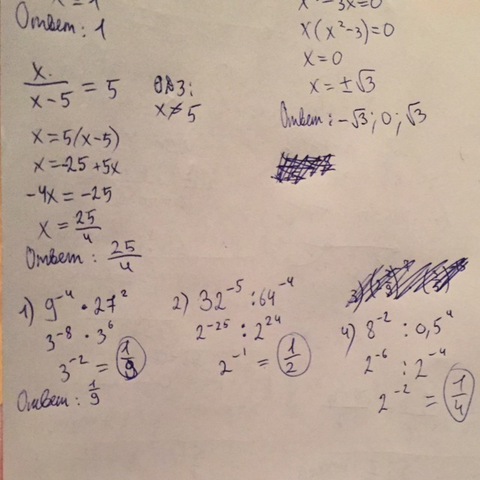 Ответ: 1
x/(x-5) = 5 ОДЗ: x ≠ 5
x = 5(x-5)
x = -25 + 5x
-4x = -25
x = 25/4
Ответ: 25/4
x(x²-3)=0
x = 0
x = ±√3
Ответ: -√3; 0; √3
1) 9⁻⁴ · 27²
3⁻⁸ · 3⁶
3⁻² = 1/9
Ответ: 1/9
2) 32⁻⁵ : 64⁻⁴
2⁻²⁵ : 2²⁴
2⁻¹ = 1/2
4) 8⁻² : 0,5⁴
2⁻⁶ : 2⁻⁴
2⁻² = 1/4